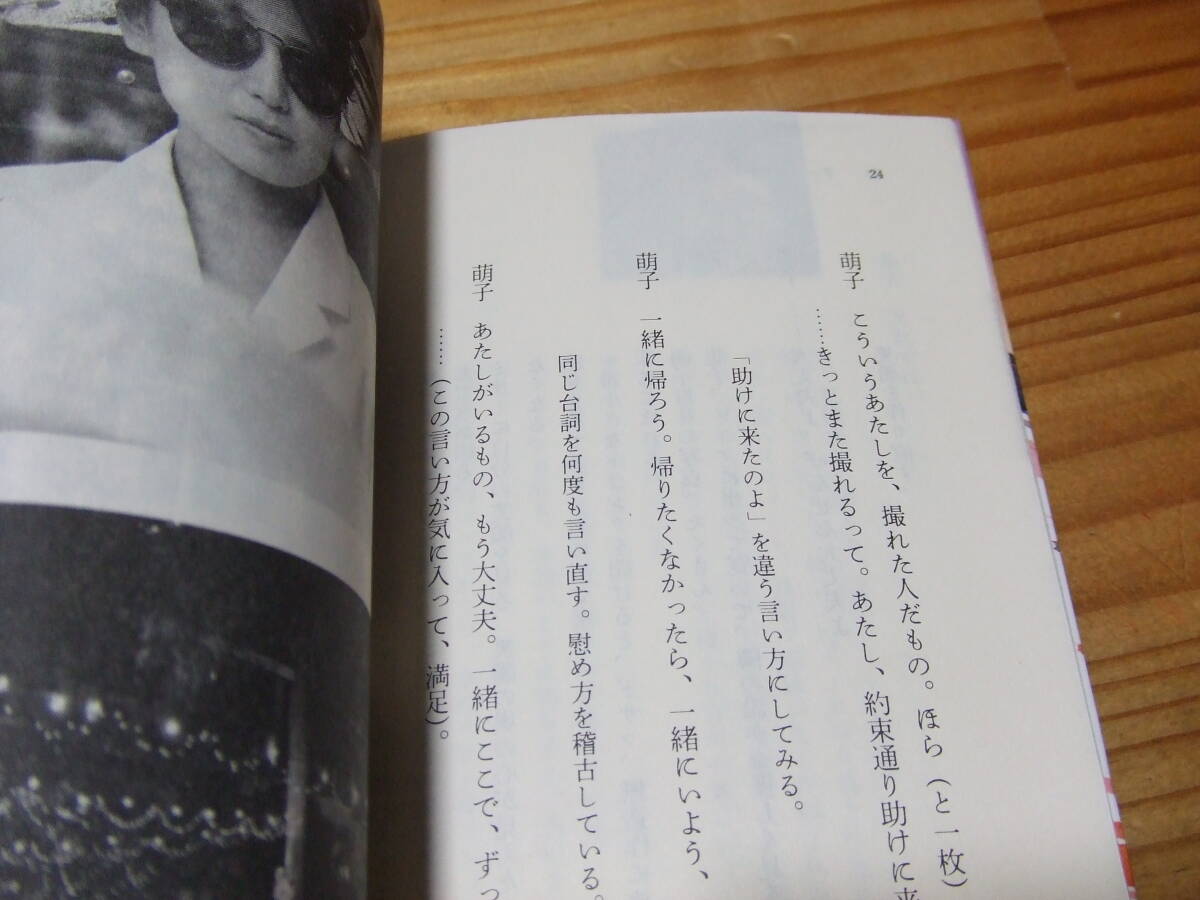 24
萌子　こういうあたしを、撮れた人だもの。ほら（と一枚）
……きっとまた撮れるって。あたし、約束通り助けに来
「助けに来たのよ」を違う言い方にしてみる。
萌子　一緒に帰ろう。帰りたくなかったら、一緒にいよう、
同じ台詞を何度も言い直す。慰め方を稽古している。
萌子　あたしがいるもの、もう大丈夫。一緒にここで、ずっ
……（この言い方が気に入って、満足）。